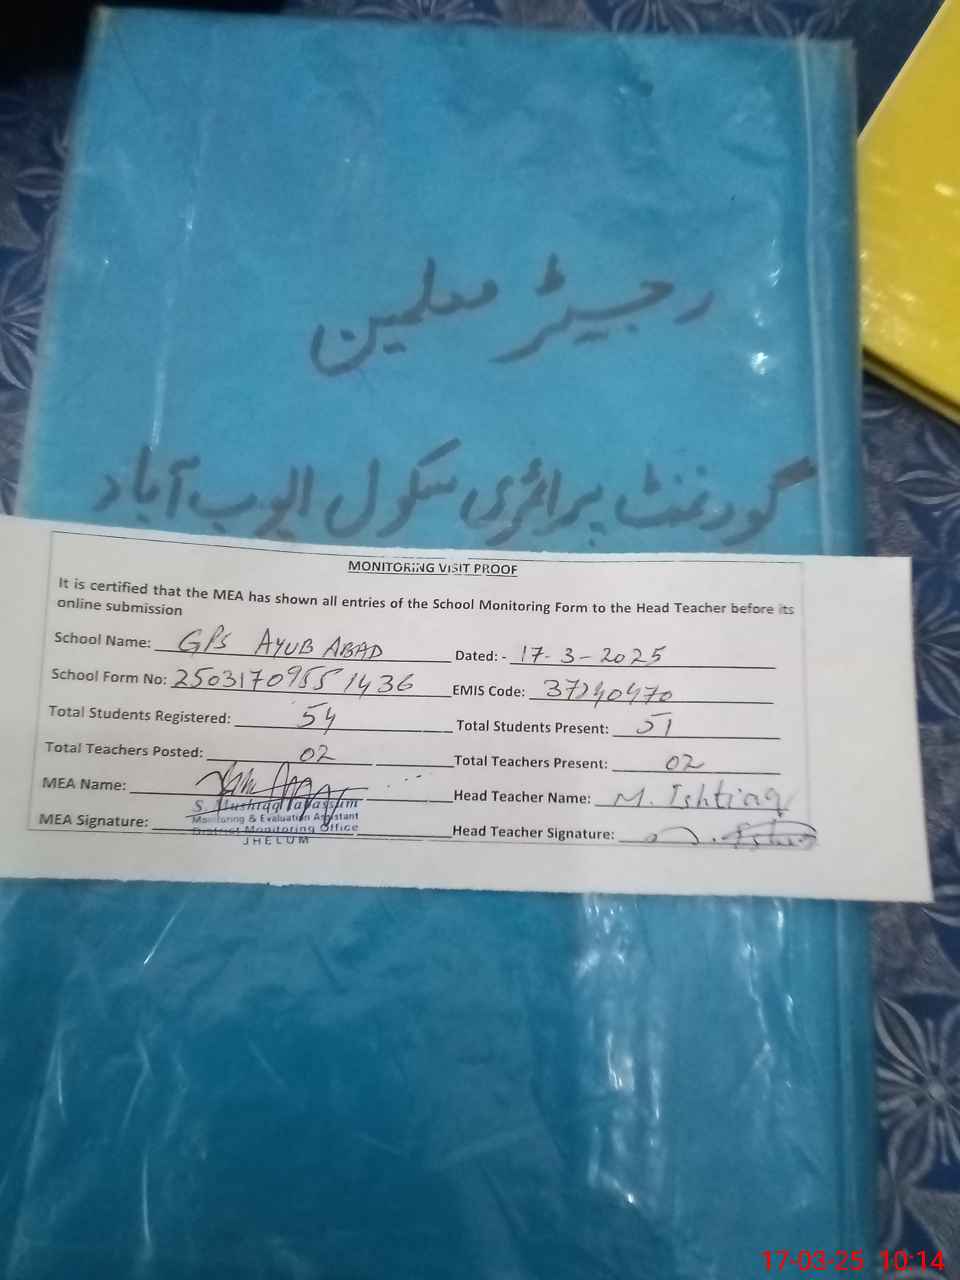 رجسٹر معلمین
گورنمنٹ پرائمری سکول ایوب آباد
MONITORING VISIT PROOF
It is certified that the MEA has shown all entries of the School Monitoring Form to the Head Teacher before its
online submission
School Name: GPS AYUB ABAD Dated: - 17-3-2025
School Form No: 25031709551436 EMIS Code: 37240470
Total Students Registered: 54 Total Students Present: 51
Total Teachers Posted: 02 Total Teachers Present: 02
MEA Name: Head Teacher Name: M. Ishtiaq
S. Mushtaq Tabassum
Monitoring & Evaluation Assistant
MEA Signature: Head Teacher Signature:
District Monitoring Office
JHELUM
17-03-25 10:14